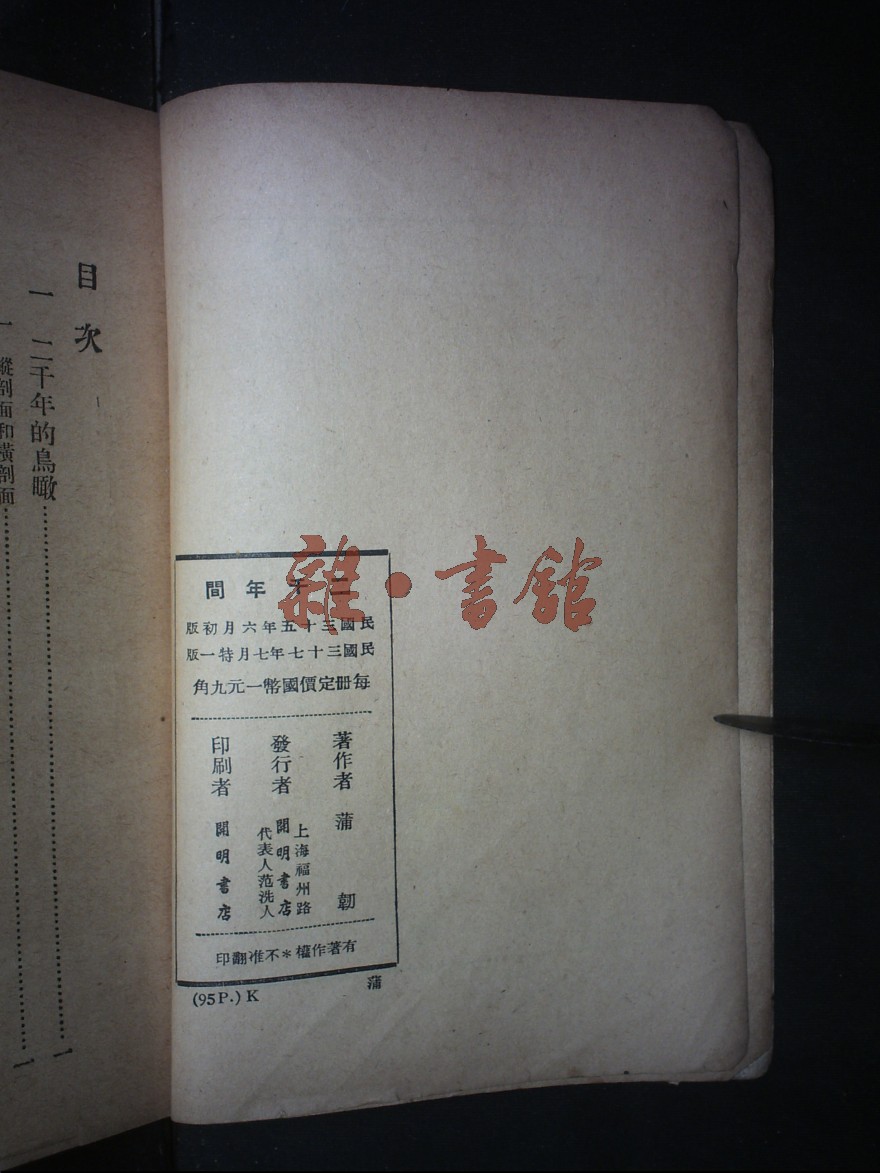 二千年間
民國三十五年六月初版
民國三十七年七月特一版
每冊定價國幣一元九角
著作者 蒲韌
發行者 上海福州路
開明書店
代表人范洗人
印刷者 開明書店
有著作權*不准翻印
(95P.) K
蒲
目次
一 二千年的鳥瞰……一
一 縱剖面和橫剖面……一
雜·書館